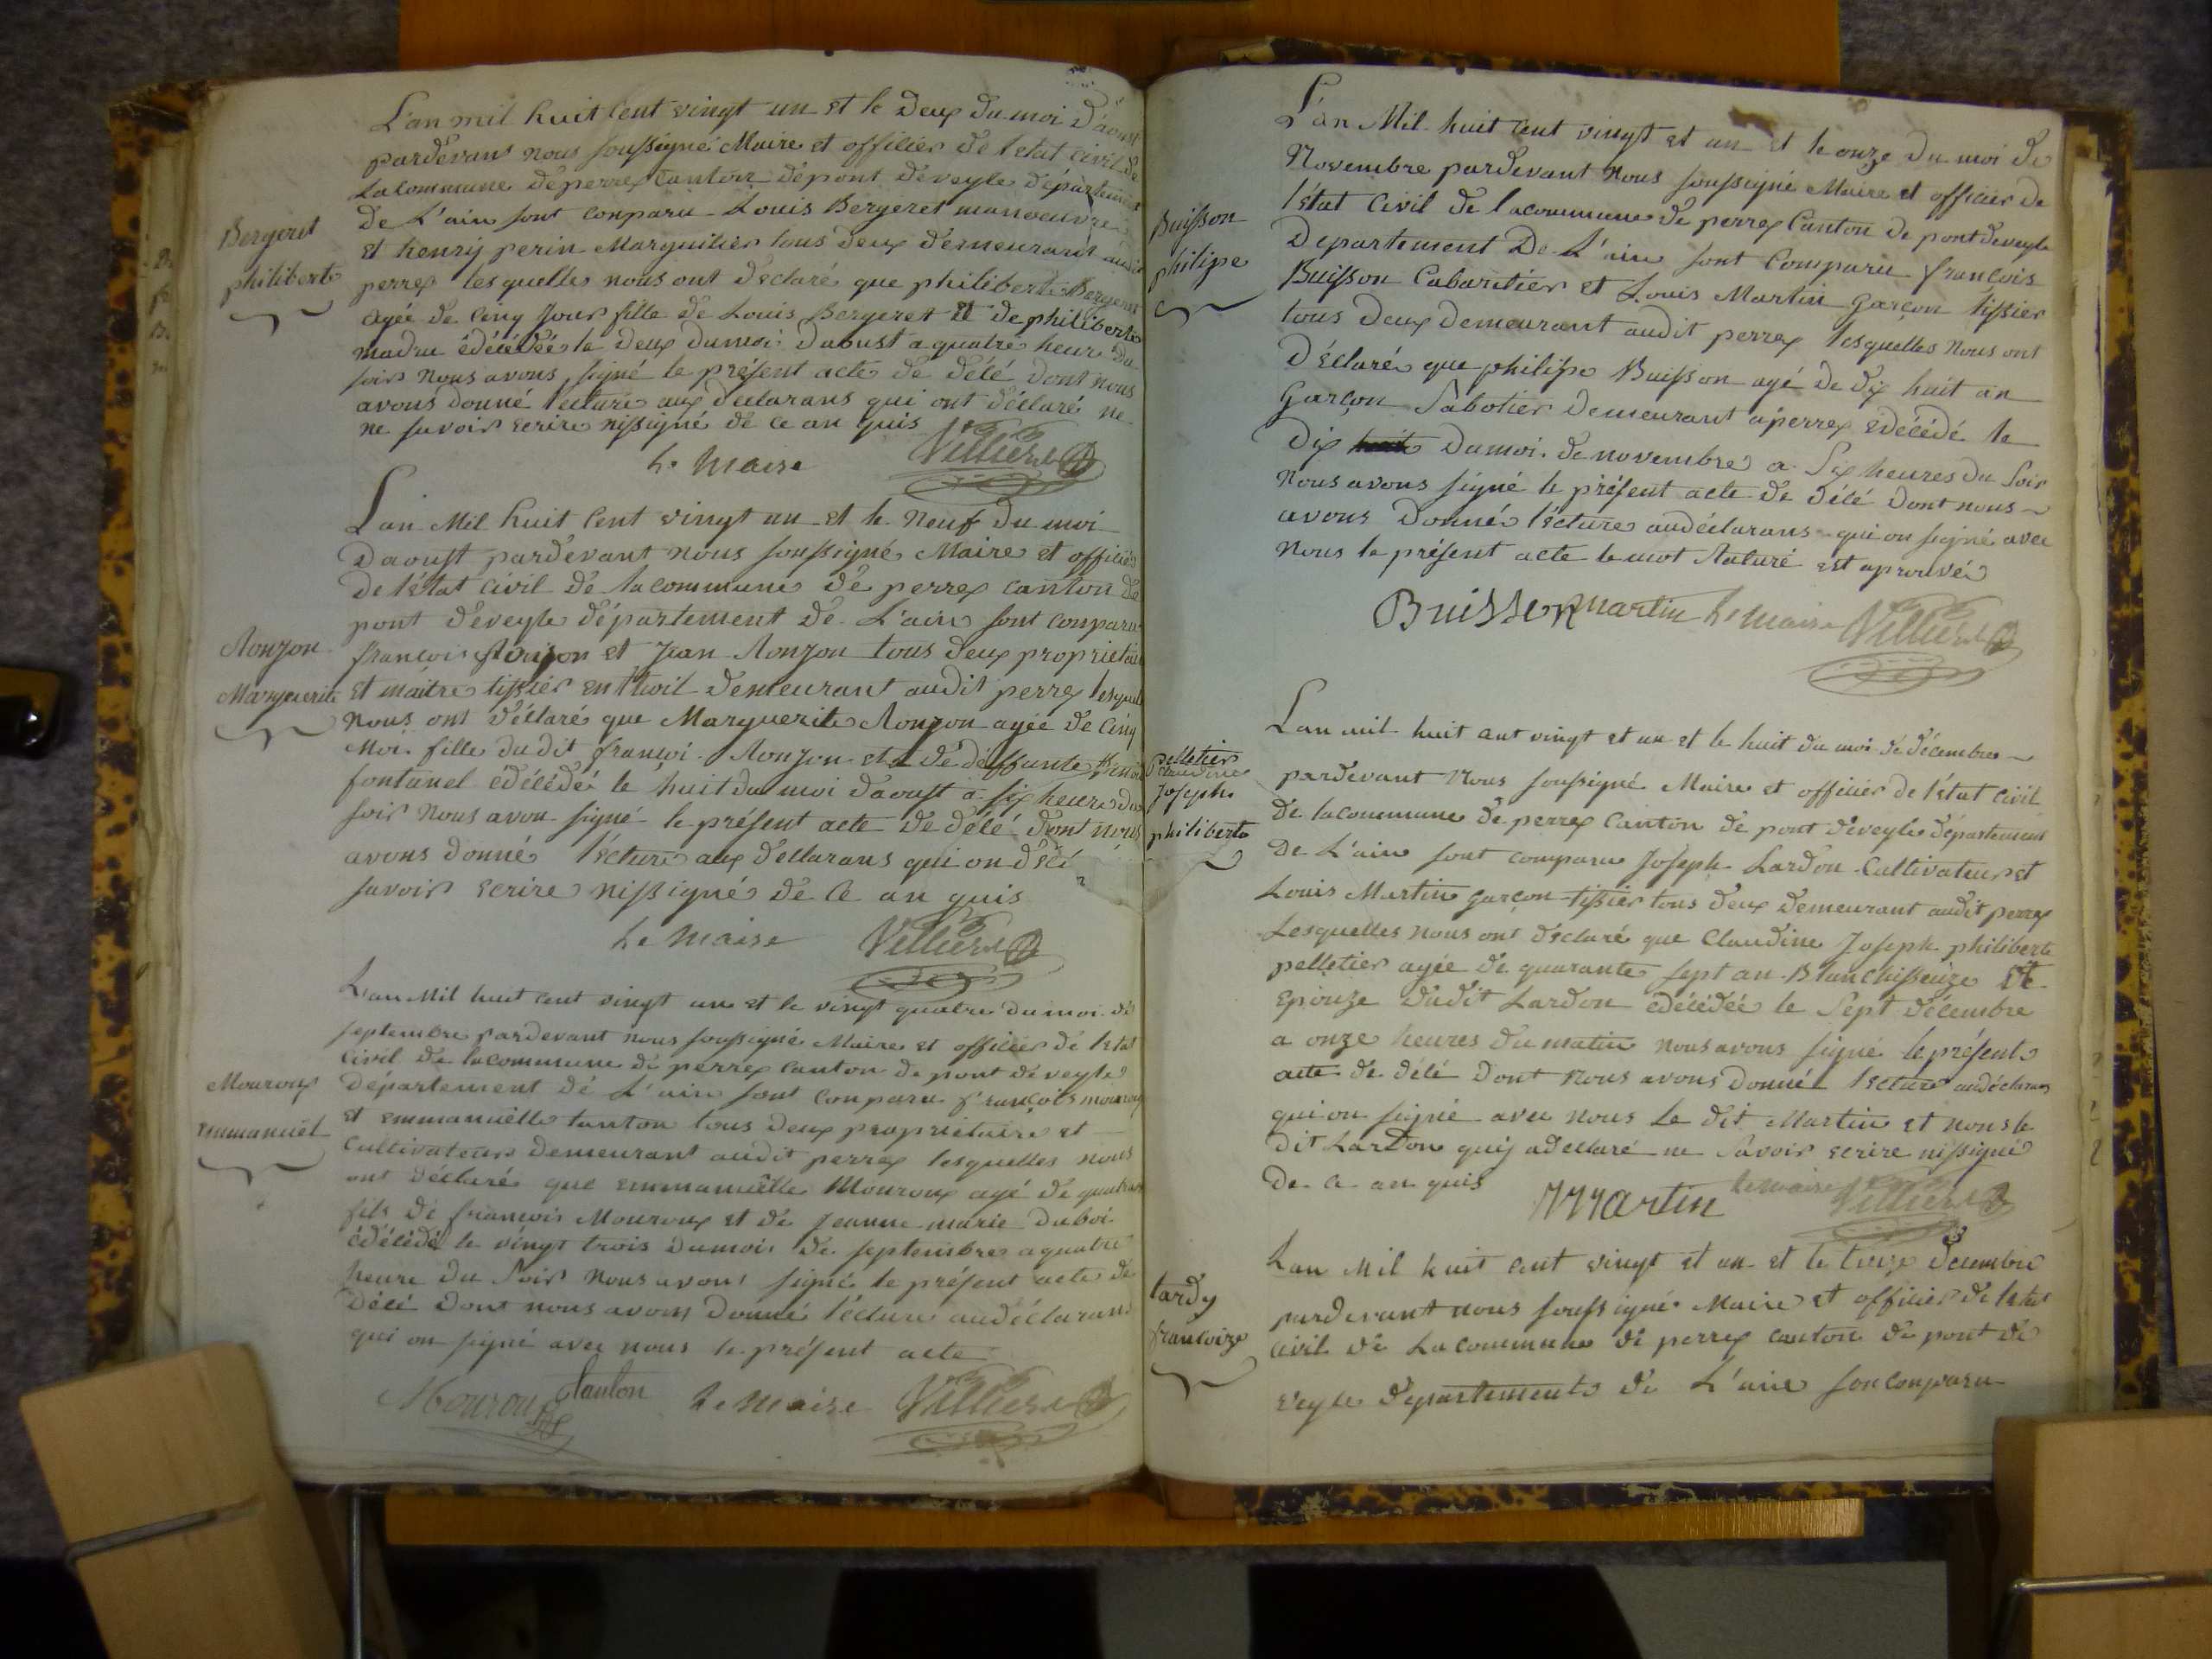 L'an mil huit Cent vingt un et le Deux du moi D'aoust
pardevant nous soussigné Maire et officier de letat Civil de
La Commune de perrex Canton de pont deveyle departement
De L'ain sont Conparu Louis Bergeret manoeuvre
et henry perin Marguilier tous deux demeurant audit
perrex lesquelles nous ont declaré que philiberte Bergeret
Bergeret
philiberte
agée de Cinq Jour fille de Louis Bergeret et de philiberte
madru édécédée le deux du moi Daoust a quatre heure du
soir nous avons signé le présent acte de décé dont nous
avons donné lecture aux declarans qui ont déclaré ne
ne savoir ecrire nissigné de ce an quis
le Maire Villiere
L'an Mil huit Cent vingt un et le Neuf du moi
Daoust pardevant nous soussigné Maire et officier
De létat Civil de la commune de perrex canton de
pont deveyle département de L'ain sont conparu
françois Ronjon et Jean Ronjon tous deux propriétaire
Ronjon
Marguerite
et maitre tissier en thoil demeurant audit perrex lesquel
nous ont déclaré que Marguerite Ronjon agée de Cinq
Moi fille dudit françoi Ronjon et de deffunte
fontanel édécédé le huit du moi daoust a six heure du
soir nous avon signé le présent acte de décé dont nous
avons donné lecture aux declarans qui on
savoir ecrire nissigné de Ce an quis
Le Maire Villiere
L'an Mil huit cent vingt un et le vingt quatre du moi de
septembre pardevant nous soussigné Maire et officier de letat
Civil de la commune de perrex canton de pont de veyle
Mouroux
emmanuel
Département de L'ain sont Conparu françois mouroux
et emmanuelle tanton tous deux propriétaire et
Cultivateur demeurant audit perrex lesquelles nous
ont déclaré que emmanuelle Mouroux agé de
fils de françois Mouroux et de Jeanne marie duboi
édécédé le vingt trois dumoi de septembre a quatre
heure du Soir nous avons signé le présent acte de
décé dont nous avons donné lecture audéclarans
qui on signé avec nous le présent acte
Mouroux Tanton le Maire Villiere
L'an Mil huit Cent vingt et un et le onze du moi de
Novembre pardevant Nous soussigné Maire et officier de
létat Civil de la commune de perrex Canton de pont deveyle
Buisson
philipe
Departement De L'ain sont Comparu françois
Buisson Cabaretier et Louis Martin garçon tissier
tous deux demeurant audit perrex lesquelles nous ont
Déclaré que philipe Buisson agé de dix huit an
Garçon Sabotier demeurant a perrex édécédé le
Dix huit du moi de novembre a Six heures du Soir
nous avons signé le présent acte de décé dont nous
avons Donné lecture audéclarans qui on signé avec
nous le présent acte le mot raturé est aprouvé
Buisson Martin le Maire Villiere
L'an mil huit cent vingt et un et le huit du moi de décembre
pelletier
Claudine
Joseph
philiberte
pardevant Nous soussigné Maire et officier de létat civil
de la commune de perrex Canton de pont deveyle departement
De L'ain sont comparu Joseph Lardon Cultivateur et
Louis Martin garçon tissier tous deux demeurant audit perrex
Lesquelles nous ont déclaré que Claudine Joseph philiberte
pelletier agée de quarante sept an Blanchisseuze et
Epouze dudit Lardon édécédée le Sept décembre
a onze heures du matin nous avons signé le présent
acte de décé dont nous avons donné lecture audéclarans
qui on signé avec nous le dit Martin et nons le
dit Lardon quij a declaré ne Savoir ecrire nissigné
De ce an quis
Martin le maire Villiere
L'an Mil huit cent vingt et un et le treize decembre
tardy
françoize
pardevant nous soussigné Maire et officier de létat
Civil de La commune de perrex canton de pont de
veyle departement de L'ain son conparu